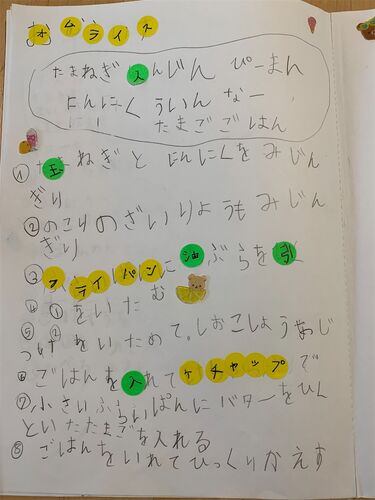 オムライス
たまねぎ 人んじん ぴーまん
にんにく ういんなー
たまごごはん
① 玉ねぎとにんにくをみじん
ぎり
② のこりのざいりょうもみじん
ぎり
③ フライパンに油ぶらを引く
④ ①をいたむ
⑤ ②をいためて。しおこしょうあじ
つけ
⑥ ごはんを入れてケチャップで
⑦ 小さいふらいぱんにバターをひく
といたたまごを入れる
⑧ ごはんをいれてひっくりかえす